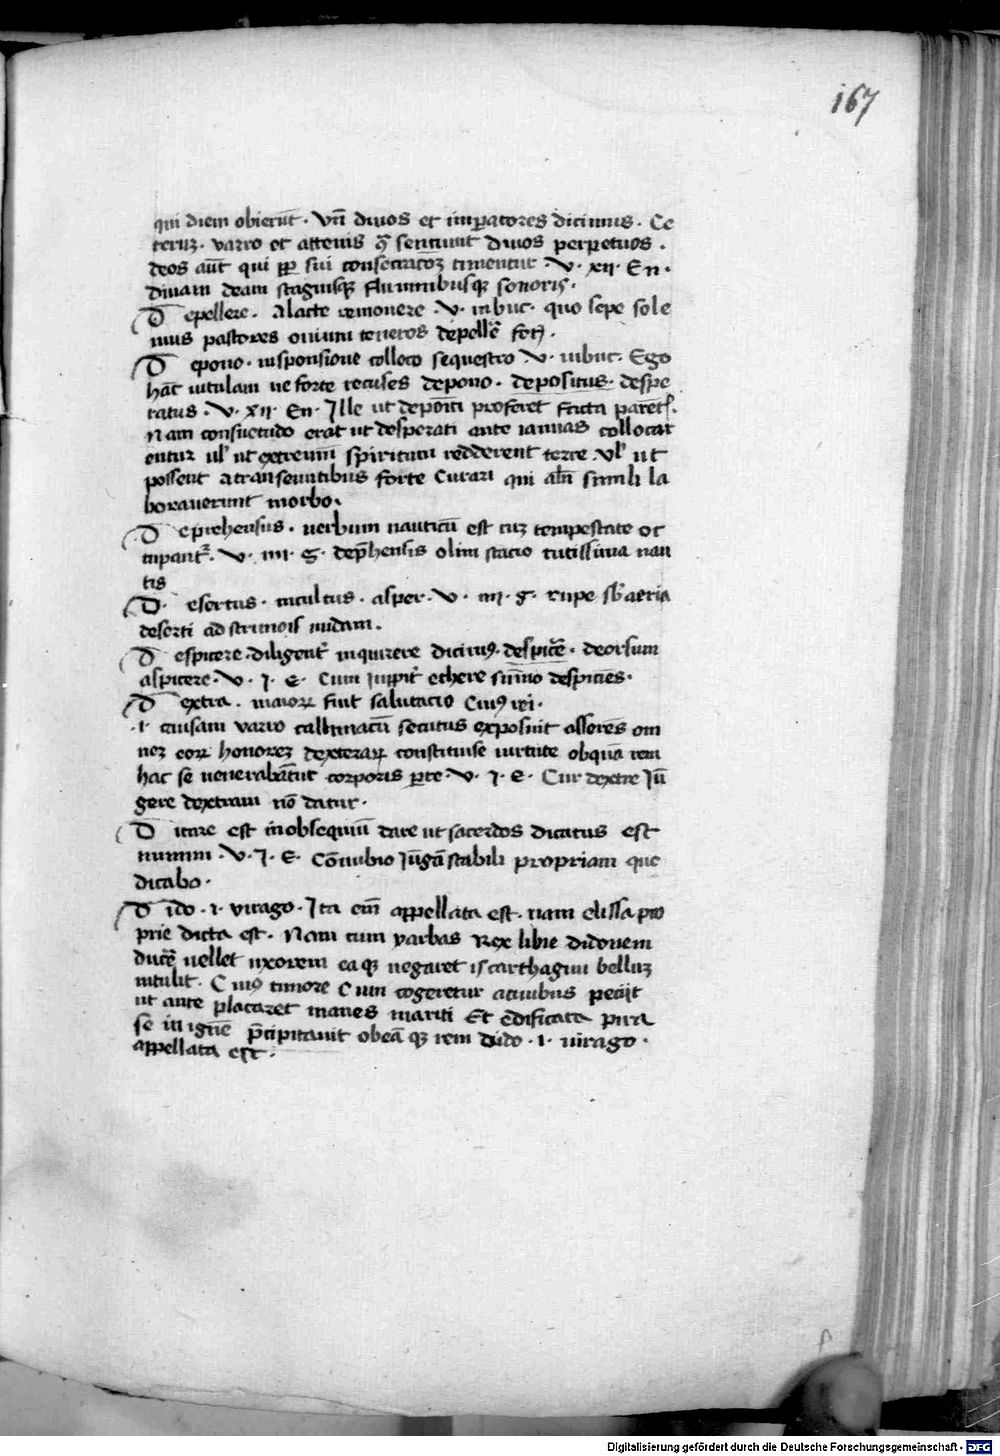 167
qui diem obierūt · Vn̄ diuos et imꝑatores dicimus · Ce
teruꝫ · varro et atteius ꝗ̄ sentiunt diuos perpetuos ·
deos aūt qui ꝓpt sui consecratoꝫ timentur · V · xii · En ·
diuam deam stagnisqꝫ fluminibusqꝫ sonoris ·
D epellere · A lacte remouere · V · in buc · quo sepe sole
mus pastores ouium teneros depellē
D epono · in sponsione colloco sequestro · V · in buc · Ego
hāc uitulam ne forte recuses depono · depositus · despe
ratus · V · xii · En · Ille ut depoīti proferet fata parētꝭ ·
Nam consuetudo erat ut desperati ante ianuas collocar
entur ul̓ ut extremū spiritum redderent terre vl̓ ut
possent a transeuntibus forte Curari qui alīn simili la
borauerunt morbo ·
D eprehensus · uerbum nauticū est cuꝫ tempestate oc
cupant᷑ · V · iiii · g · dep̄hensis olim stacio tutissima nau
tis
D esertus · incultus · asper · V · iiii · g · rupe sb̓ aeria
deserti ad strimois undam ·
D espicere · diligent᷑ inquirere dicimꝰ · despicē̓ · deorsum
aspicere · V · I · E · Cum iuppit᷑ ethere summo despiciēs ·
D extra · maioꝝ fuit salutacio Cuiꝰ rei ·
· i · causam varro callimacū secutus exposuit asserēs om
neꝫ eoꝝ honoreꝫ dexteraꝝ constitisse uirtute ob quā rem
hac se uenerabātur corporis ꝑte · V · I · E · Cur dextre Iū
gere dextram nō datur ·
D icare est in obsequiū dare ut sacerdos dicatus est
numini · V · I · E · Cōnubio Iūgā stabili propriam que
dicabo ·
D ido · i · virago · Ita em̄ appellata est · nam elissa pro
prie dicta est · Nam cum yarbas Rex libie didonem
ducē̓ uellet uxorem eaqꝫ negaret is carthagini belluꝫ
intulit · Cuiꝰ timore Cum cogeretur a ciuibus peciit
ut ante placaret manes mariti Et edificata pira
se in ignē p̄cipitauit ob eāqꝫ rem dido · i · uirago ·
appellata est ·
Digitalisierung gefördert durch die Deutsche Forschungsgemeinschaft - DFG